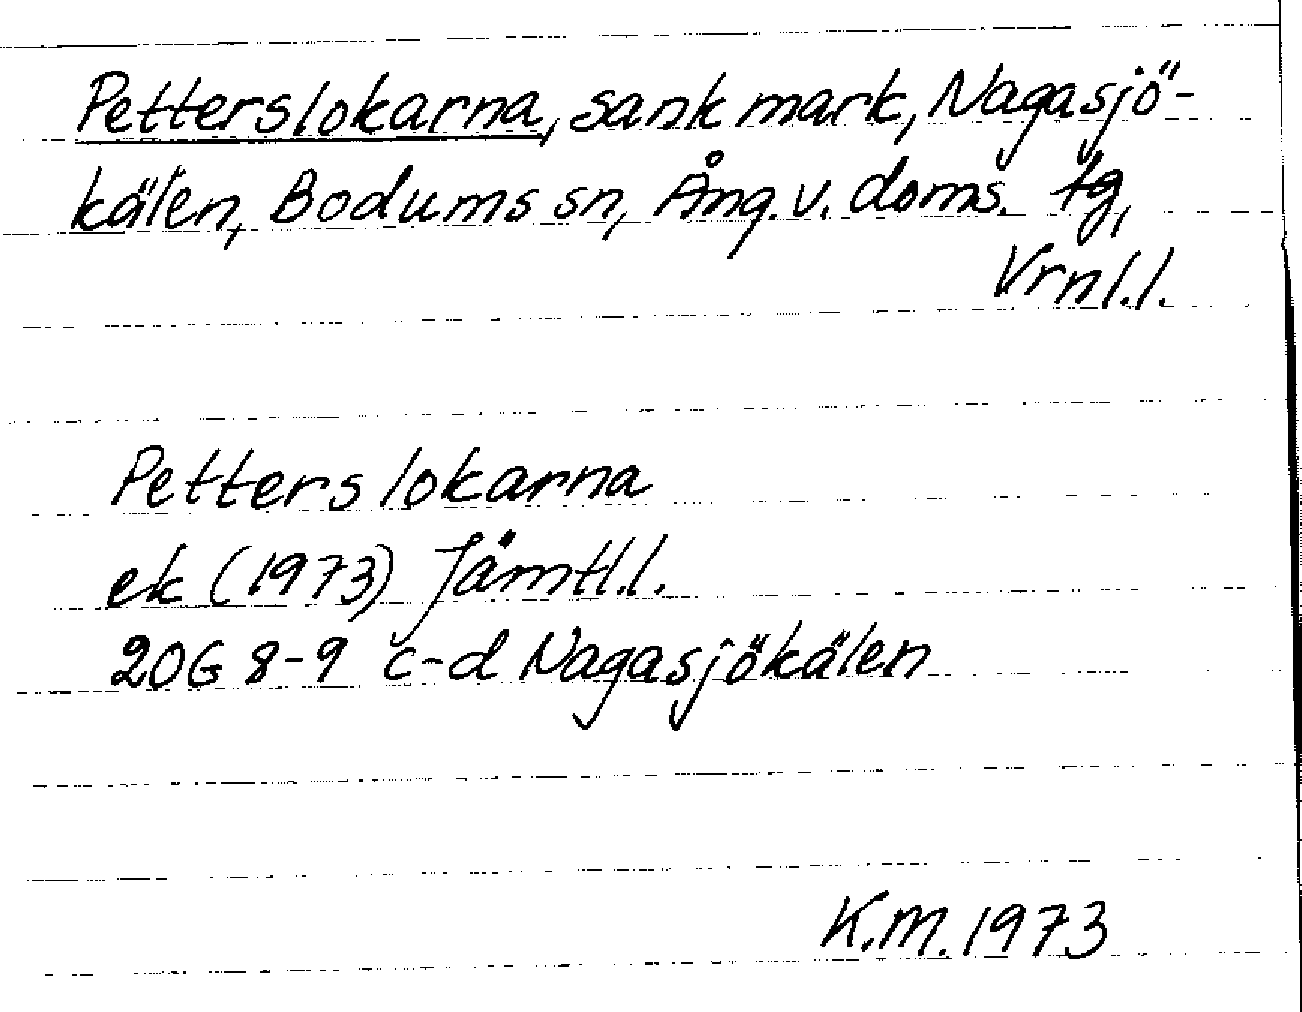 Petterslokarna, sank mark, Nagasjö-
kälen, Bodums sn, Ång. v. doms. tg,
Vrnl.l.
Petterslokarna
ek (1973) Jämtl.l.
20G 8-9 c-d Nagasjökälen
K.M. 1973